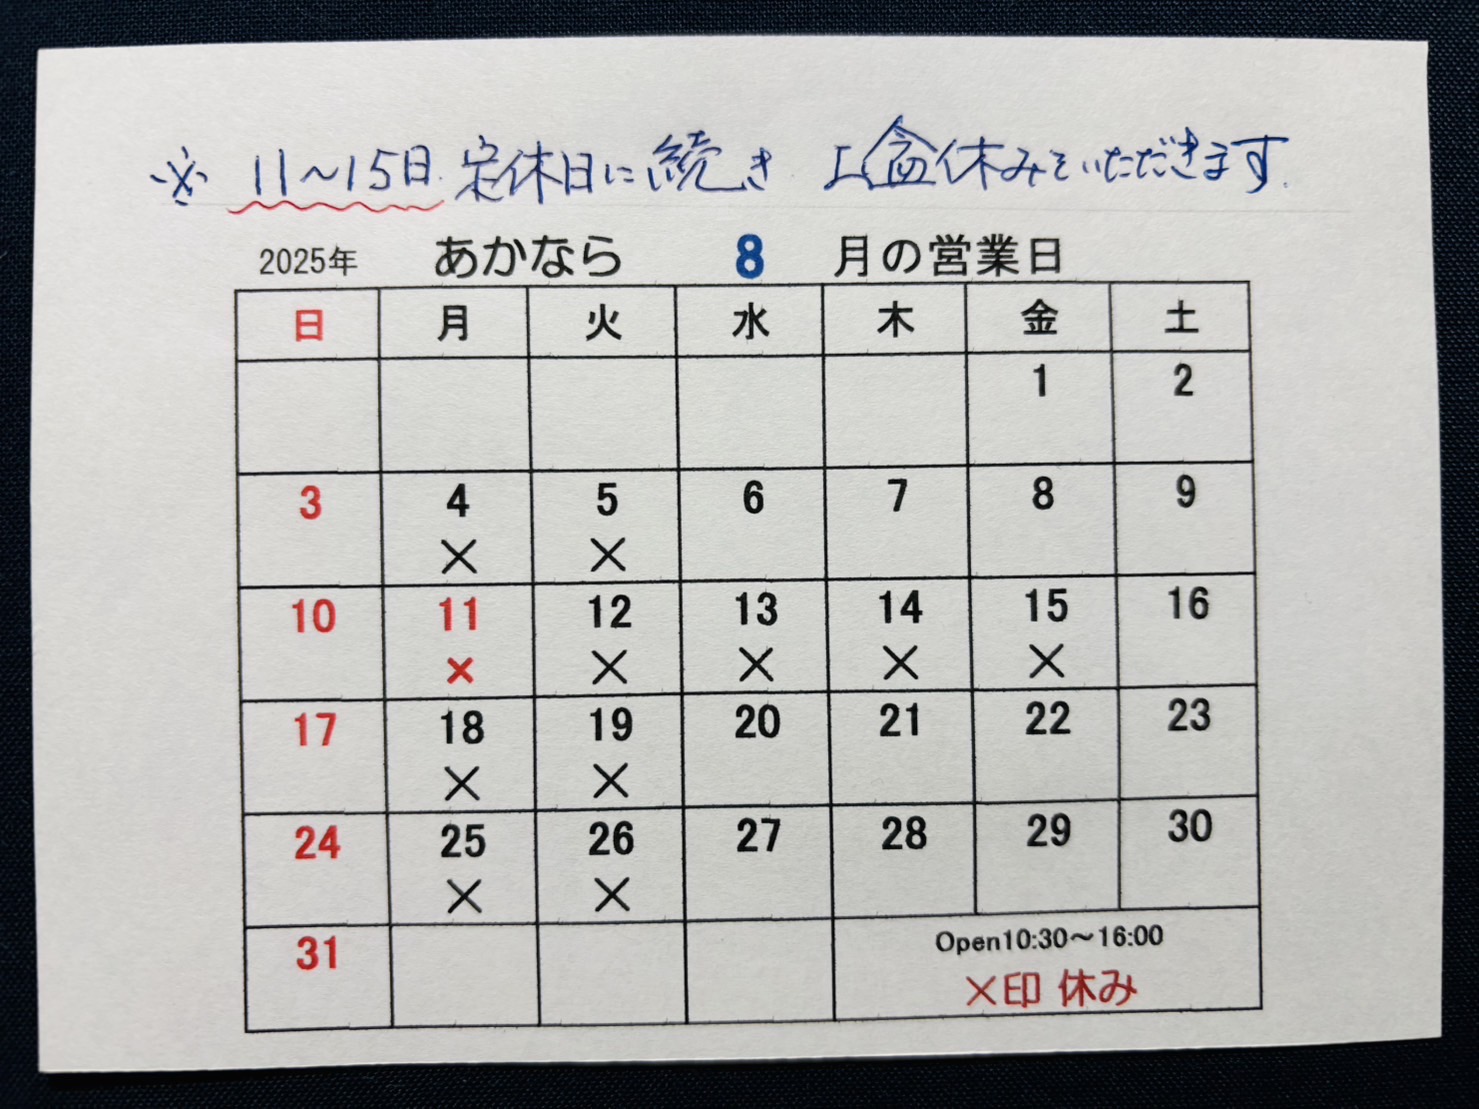 ※ 11～15日 定休日に続き お盆休みをいただきます
2025年 あかなら 8 月の営業日
日 月 火 水 木 金 土
1 2
3 4 5 6 7 8 9
× ×
10 11 12 13 14 15 16
× × × × ×
17 18 19 20 21 22 23
× ×
24 25 26 27 28 29 30
× ×
31
Open10:30～16:00
×印 休み